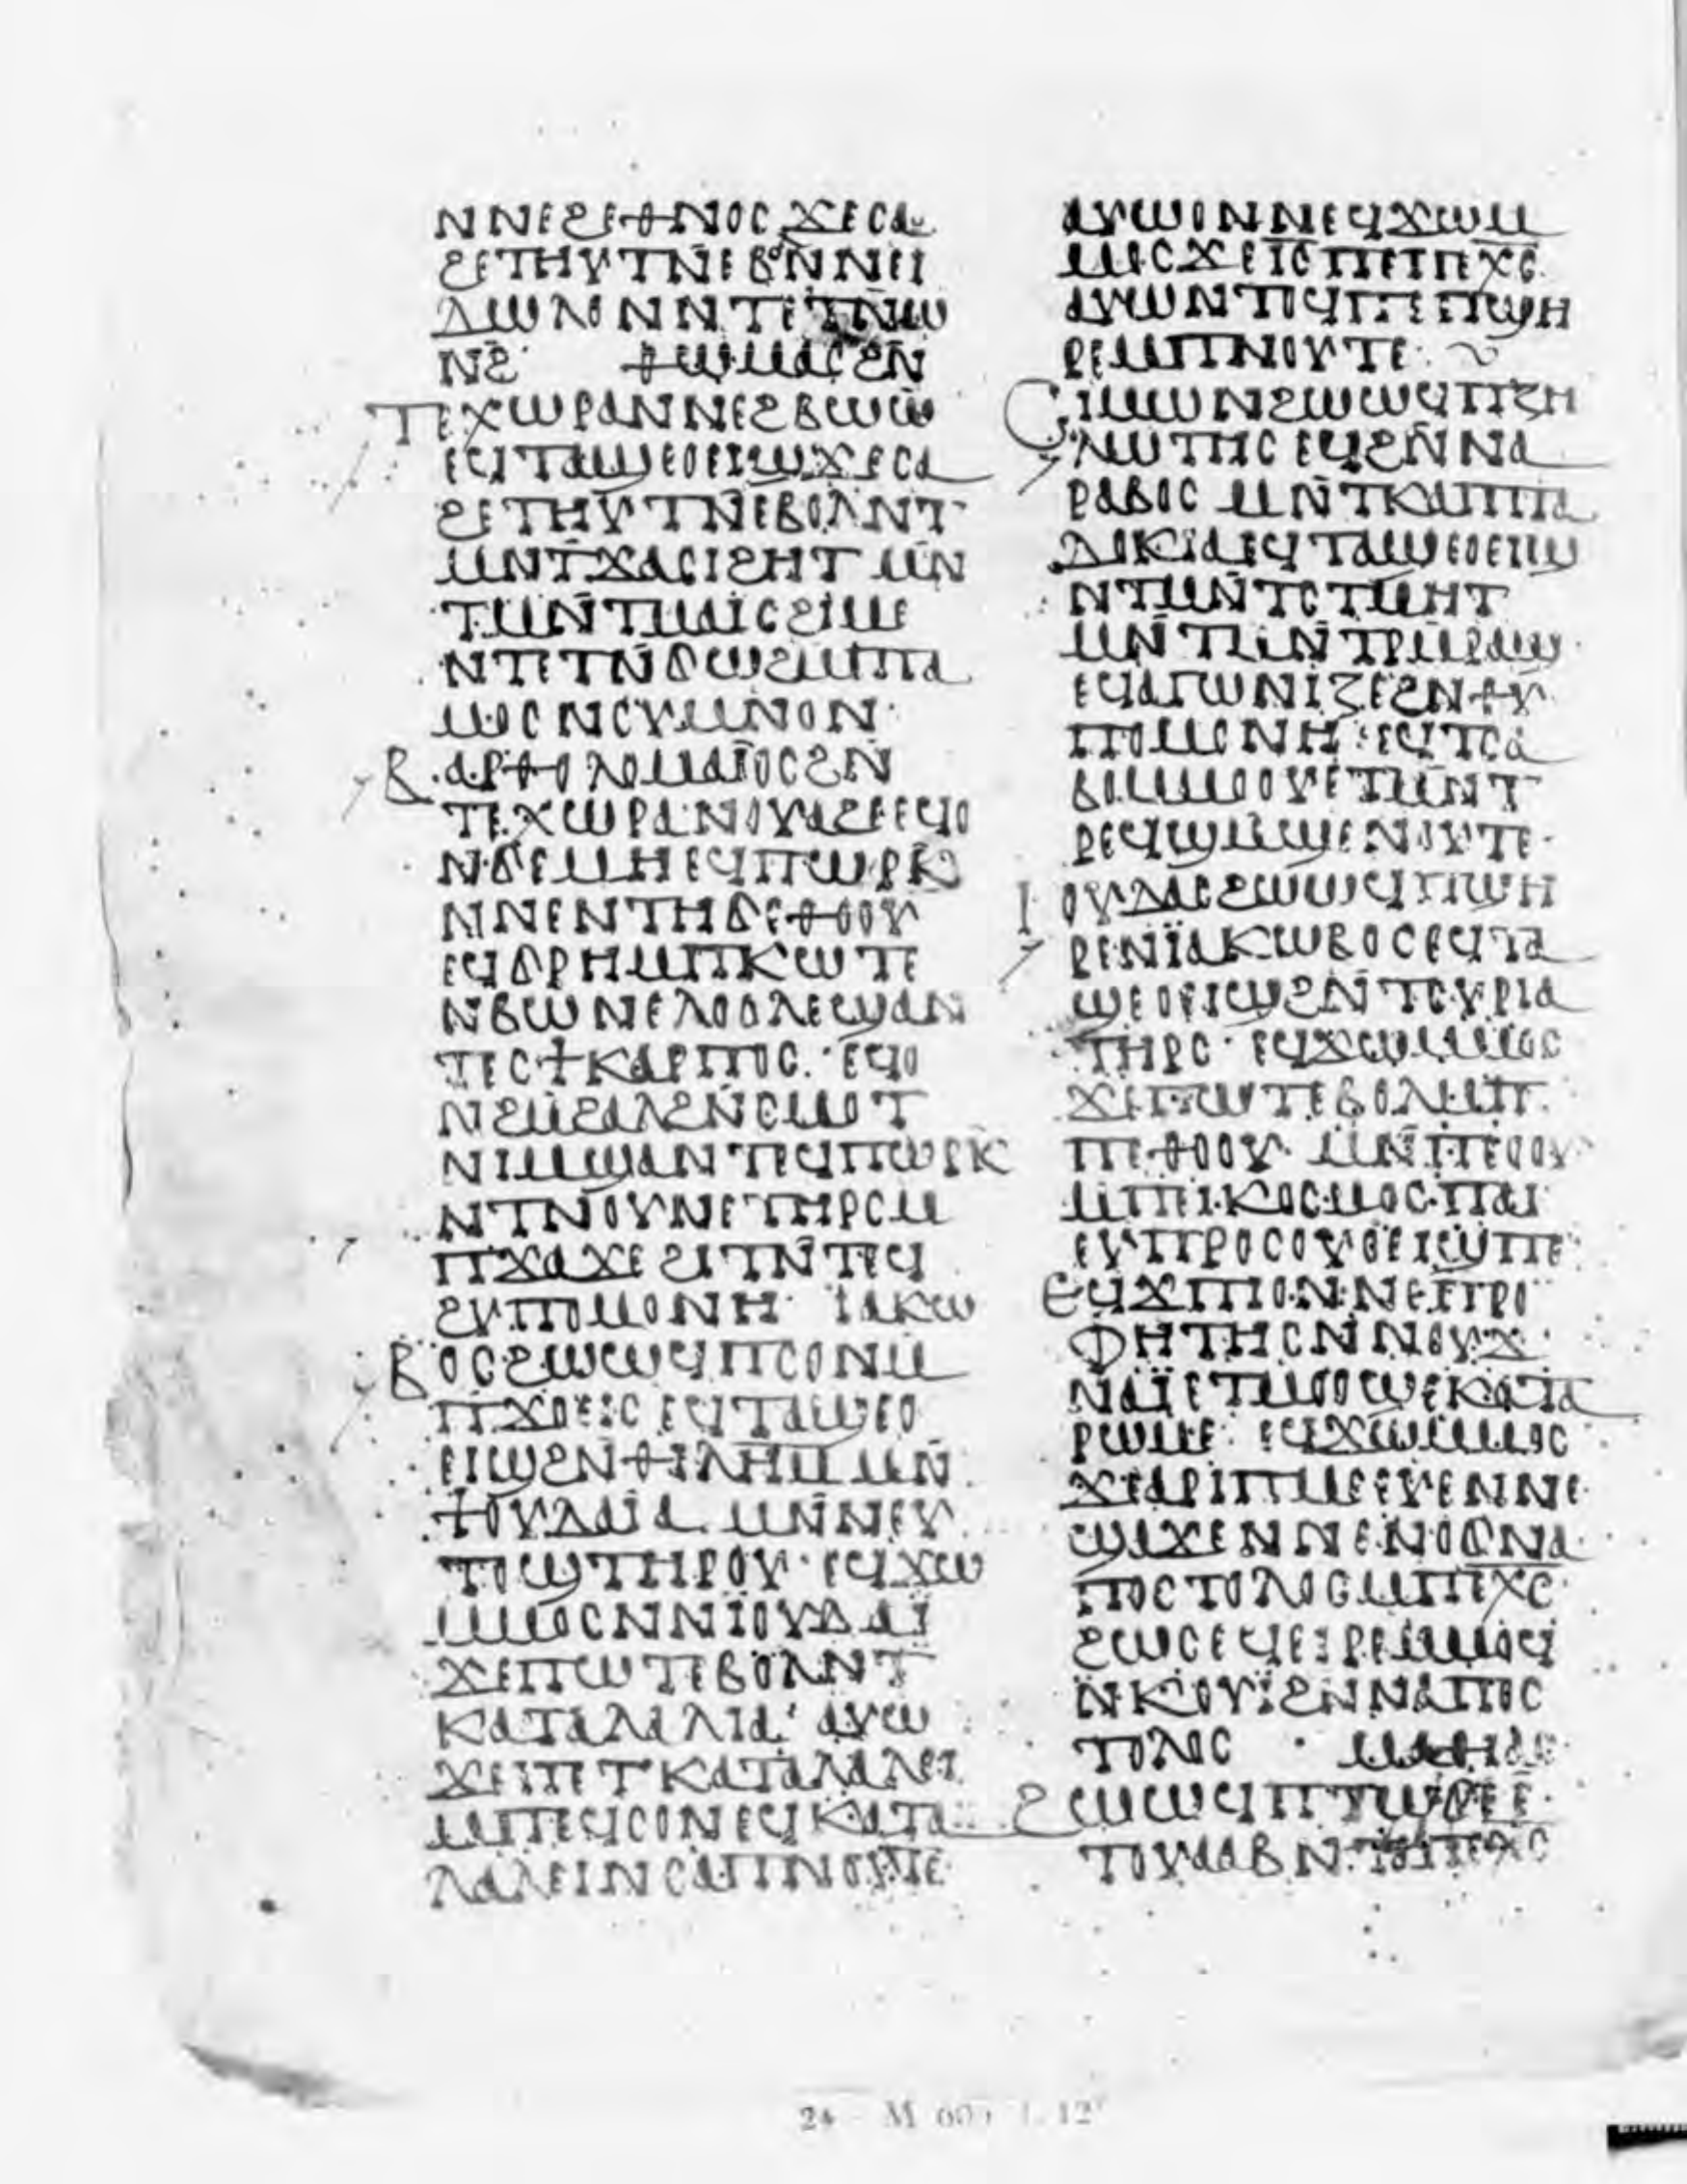 ⲛⲛⲉϩⲉⲑⲛⲟⲥ ϫⲉⲥⲁ
ϩⲉⲧⲏⲩⲧⲛ̄ⲉⲃⲟⲗⲛ̄ⲛⲉⲓ
ⲇⲱⲗⲟⲛ ⲛⲧⲉⲧⲛ̄ⲱ
ⲛϩ ⲑⲱⲙⲁⲥϩⲛ̄
ⲧⲉⲭⲱⲣⲁⲛⲛⲉϩⲃⲱⲱ
ⲉϥⲧⲁϣⲉⲟⲉⲓϣϫⲉⲥⲁ
ϩⲉⲧⲏⲩⲧⲛ̄ⲉⲃⲟⲗⲛⲧ
ⲙⲛⲧϫⲁⲥⲓϩⲏⲧ ⲙⲛ̄
ⲧⲙⲛ̄ⲧⲙⲁⲓⲥϩⲓⲙⲉ
ⲛⲧⲉⲧⲛ̄ϭⲱϩⲙⲡⲁ
ⲙⲟⲥ ⲛⲥⲩⲙⲛⲟⲛ
ⲃⲁⲣⲑⲟⲗⲟⲙⲁⲓⲟⲥϩⲛ̄
ⲧⲉⲭⲱⲣⲁⲛⲟⲩⲁϩⲉⲉϥⲟ
ⲛϭⲉⲙⲏ ⲉϥⲡⲱⲣⲕ̄
ⲛⲛⲉⲛⲧⲏϭⲉⲑⲟⲟⲩ
ⲉϥϭⲣⲏⲙⲡⲕⲱⲧⲉ
ⲛⲃⲱⲛⲉⲗⲟⲟⲗⲉϣⲁⲛ
ⲧⲉⲥϯⲕⲁⲣⲡⲟⲥ · ⲉϥⲟ
ⲛϩⲙϩⲁⲗϩⲛ̄ⲥⲙⲟⲧ
ⲛⲓⲙϣⲁⲛⲧⲉϥⲡⲱⲣⲕ
ⲛⲧⲛⲟⲩⲛⲉⲧⲏⲣⲥⲙ
ⲡϫⲁϫⲉϩⲓⲧⲛ̄ⲧⲉϥ
ϩⲩⲡⲟⲙⲟⲛⲏ· ⲓⲁⲕⲱ
ⲃⲟⲥϩⲱⲱϥⲡⲥⲟⲛⲙ
ⲡϫⲟⲉⲓⲥ ⲉϥⲧⲁϣⲉⲟ
ⲉⲓϣϩⲛⲑⲓⲗⲏⲙ ⲙⲛ̄
ϯⲟⲩⲇⲁⲓⲁ ⲙⲛⲛⲉⲩ
ⲧⲟϣⲧⲏⲣⲟⲩ· ⲉϥϫⲱ
ⲙⲙⲟⲥⲛⲛⲓⲟⲩⲇⲁⲓ̈
ϫⲉⲡⲱⲧⲉⲃⲟⲗⲛⲧ
ⲕⲁⲧⲁⲗⲁⲗⲓⲁ· ⲁⲩⲱ
ϫⲉⲡⲉⲧⲕⲁⲧⲁⲗⲁⲗⲉⲓ
ⲙⲡⲉϥⲥⲟⲛ ⲉϥⲕⲁⲧⲁ
ⲗⲁⲗⲉⲓⲛⲥⲁⲡⲛⲟⲩⲧⲉ
ⲁⲩⲱⲟⲛⲛⲉϥϫⲱⲙ
ⲙⲟⲥϫⲉⲓ̅ⲥ̅ⲡⲉⲡⲉⲭ̅ⲥ̅
ⲁⲩⲱⲛⲧⲟϥⲡⲉⲡϣⲏ
ⲣⲉⲙⲡⲛⲟⲩⲧⲉ·
ⲥⲓⲙⲱⲛϩⲱⲱϥⲡⲍⲏ
ⲗⲱⲧⲏⲥ ⲉϥϩⲛ̄ⲛⲁ
ⲣⲁⲃⲟⲥ ⲙⲛ̄ⲧⲕⲁⲡⲡⲁ
ⲇⲟⲕⲓⲁⲉϥⲧⲁϣⲉⲟⲉⲓϣ
ⲛⲧⲙⲛ̄ⲧⲥⲧⲙⲏⲧ
ⲙⲛ̄ ⲧⲙⲛ̄ⲧⲣⲙ̄ⲣⲁϣ
ⲉϥⲁⲅⲱⲛⲓⲍⲉϩⲛⲑⲩ
ⲡⲟⲙⲟⲛⲏ· ⲉϥⲧⲥⲁ
ⲃⲟⲙⲙⲟⲟⲩⲉⲧⲙⲛ̄ⲧ
ⲣⲉϥϣⲙ̄ϣⲉⲛⲟⲩⲧⲉ·
ⲓⲟⲩⲇⲁⲥϩⲱⲱϥⲡϣⲏ
ⲣⲉⲛⲓ̈ⲁⲕⲱⲃⲟⲥⲉϥⲧⲁ
ϣⲉⲟⲉⲓϣϩⲛ̄ⲧⲥⲩⲣⲓⲁ
ⲧⲏⲣⲥ· ⲉϥϫⲱⲙⲙⲟⲥ
ϫⲉⲡⲱⲧⲉⲃⲟⲗⲙ̄ⲡ
ⲡⲉⲑⲟⲟⲩ ⲙⲛ̄ⲡⲉⲟⲟⲩ
ⲙⲡⲉⲓⲕⲟⲥⲙⲟⲥ·ⲡⲁⲓ
ⲉⲩⲡⲣⲟⲥⲟⲩⲟⲉⲓϣⲡⲉ·
ⲉϥϫⲡⲓⲟⲛⲛⲉⲡⲣⲟ
ⲫⲏⲧⲏⲥⲛⲛⲟⲩϫ
ⲛⲁⲓ̈ⲉⲧⲙⲟⲟϣⲉⲕⲁⲧⲁ
ⲣⲱⲙⲉ· ⲉϥϫⲱⲙⲙⲟⲥ
ϫⲉⲁⲣⲓⲡⲙⲉⲉⲩⲉⲛⲛⲉ
ϣⲁϫⲉⲛⲛⲉⲛⲟϭⲛⲁ
ⲡⲟⲥⲧⲟⲗⲟⲥⲙⲡⲉⲭ̅ⲥ̅·
ϩⲱⲥⲉϥⲉⲓⲣⲉⲙⲙⲟϥ
ⲛ̈ⲕⲟⲩⲓ̈ϩⲛⲛⲁⲡⲟⲥ
ⲧⲟⲗⲟⲥ · ⲙⲁⲑⲓⲁⲥ
ϩⲱⲱϥⲡⲧⲱϭⲉⲉ
ⲧⲟⲩⲁⲁⲃ ⲛⲧⲉⲡⲉⲭⲥ